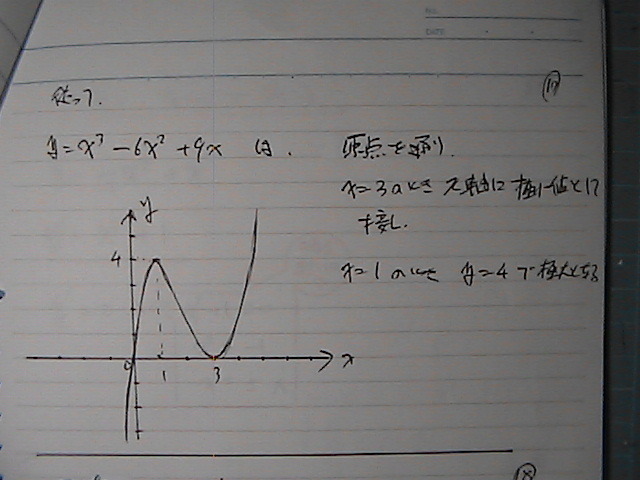 NO.
DATE
よって.
y=x³-6x²+9x は.
原点を通り.
x=3のとき x軸に極小値として
接し.
x=1のとき y=4で極大となる
y
4
0
1
3
x